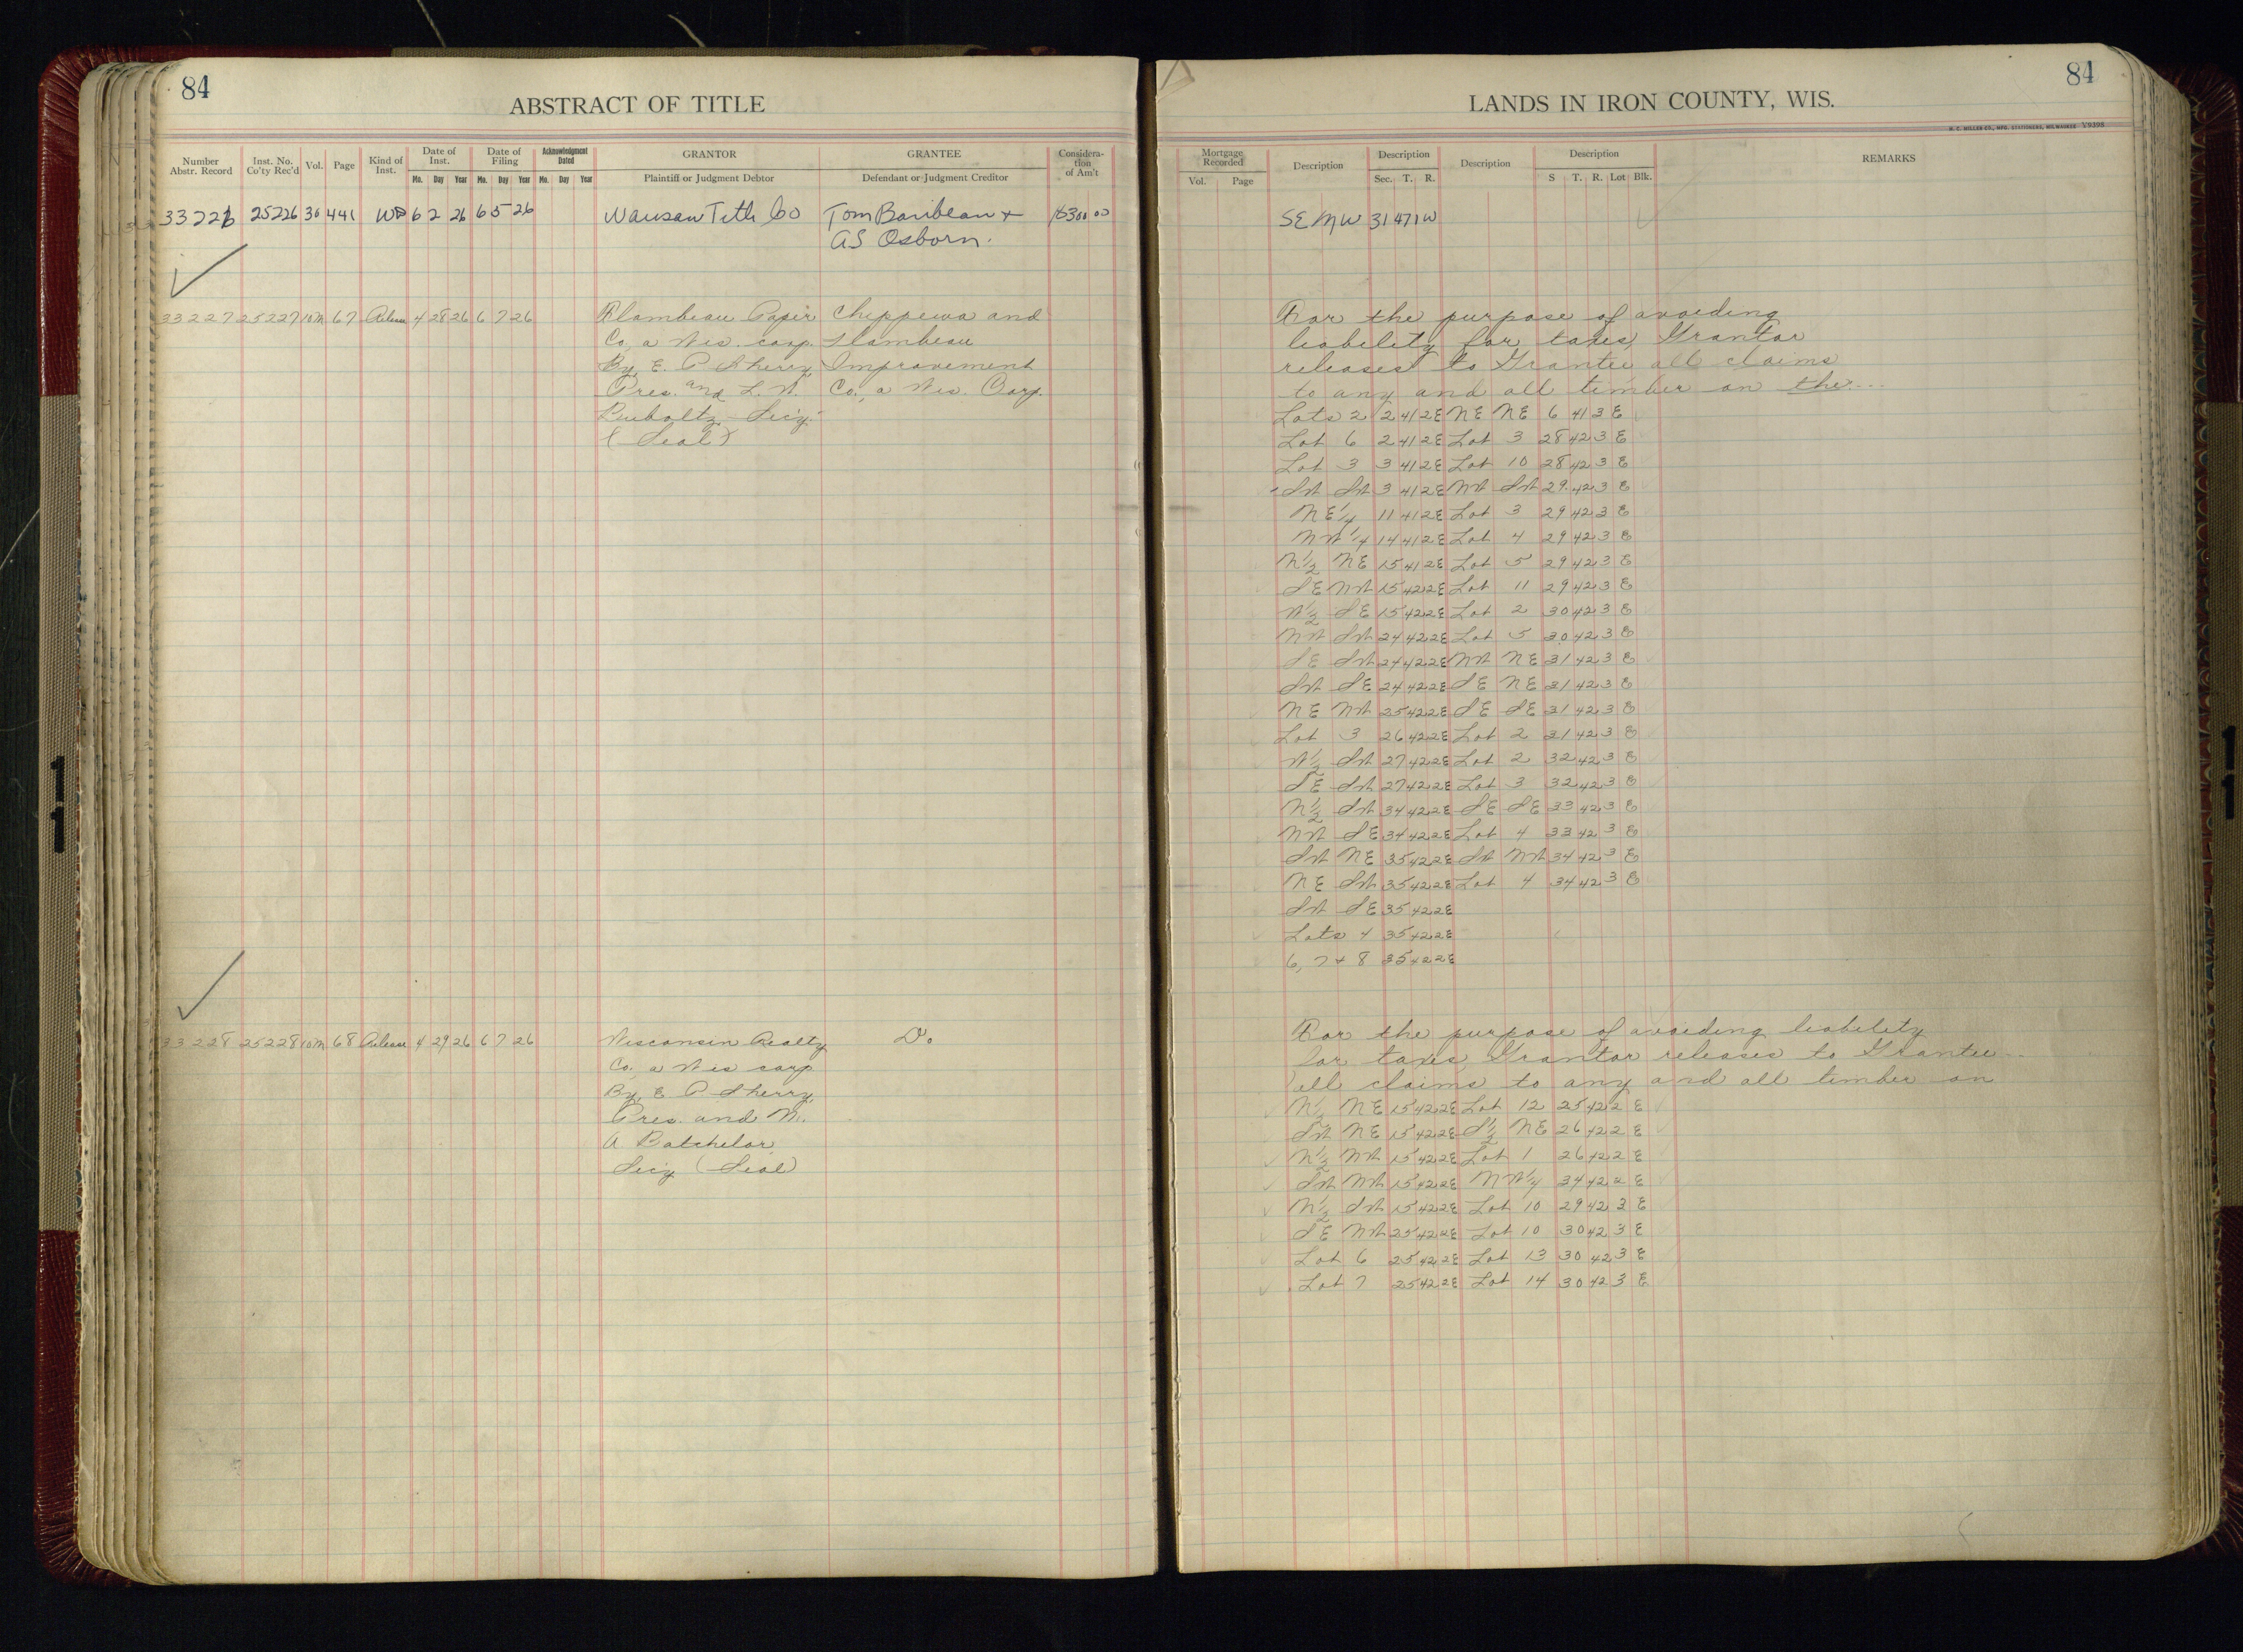 84
ABSTRACT OF TITLE
Number Abstr. Record
Inst. No. Co'ty Rec'd
Vol.
Page
Kind of Inst.
Date of Inst.
Date of Filing
Acknowledgment Dated
GRANTOR
GRANTEE
Considera-tion of Am't
Mo. Day Year Mo. Day Year Mo. Day Year
Plaintiff or Judgment Debtor
Defendant or Judgment Creditor
33226 25226 30 441 WD 6 2 26 6 5 26 Wausau Title Co Tom Baribeau + 300 00
AS Osborn.
33227 25227 10M 67 Release 4 28 26 6 7 26 Flambeau Paper Chippewa and
Co, a Wis. corp. Flambeau
By, E. P Sherry, Improvement
Pres. and L. W. Co., a Wis. Corp.
Secy.
(Seal)
33228 25228 10M 68 Release 4 29 26 6 7 26 Wisconsin Realty Do
Co. a Wis corp
By, E P Sherry,
Pres. and M.
A Batchelor,
Secy (Seal)
84
LANDS IN IRON COUNTY, WIS.
H. C. MILLER CO., MFG. STATIONERS, MILWAUKEE Y9398
Mortgage Recorded
Description
Description
Description
Description
REMARKS
Vol. Page
Sec. T. R.
S T. R. Lot Blk.
SE NW 31 47 1W
For the purpose of avoiding
liability for taxes, Grantor
releases to Grantee all claims
to any and all timber on the...
Lots 2 2 41 2E NE NE 6 41 3 E
Lot 6 2 41 2E Lot 3 28 42 3 E
Lot 3 3 41 2E Lot 10 28 42 3 E
SW SW 3 41 2E NW SW 29 42 3 E
NE 1/4 11 41 2E Lot 3 29 42 3 E
NW 1/4 14 41 2E Lot 4 29 42 3 E
N 1/2 NE 15 41 2E Lot 5 29 42 3 E
SE NW 15 42 2E Lot 11 29 42 3 E
W 1/2 SE 15 42 2E Lot 2 30 42 3 E
NW SW 24 42 2E Lot 5 30 42 3 E
SE SW 24 42 2E NW NE 31 42 3 E
SW SE 24 42 2E SE NE 31 42 3 E
NE NW 25 42 2E SE SE 31 42 3 E
Lot 3 26 42 2E Lot 2 31 42 3 E
W 1/2 SW 27 42 2E Lot 2 32 42 3 E
SE SW 27 42 2E Lot 3 32 42 3 E
N 1/2 SW 34 42 2E SE SE 33 42 3 E
NW SE 34 42 2E Lot 4 33 42 3 E
SW NE 35 42 2E SW NW 34 42 3 E
NE SW 35 42 2E Lot 4 34 42 3 E
SW SE 35 42 2E
Lots 4 35 42 2E
6, 7 + 8 35 42 2E
For the purpose of avoiding liability
for taxes, Grantor releases to Grantee
all claims to any and all timber on
N 1/2 NE 15 42 2E Lot 12 25 42 2 E
SW NE 15 42 2E S 1/2 NE 26 42 2 E
N 1/2 NW 15 42 2E Lot 1 26 42 2 E
SW NW 15 42 2E NW 1/4 34 42 2 E
N 1/2 SW 15 42 2E Lot 10 29 42 3 E
SE NW 25 42 2E Lot 10 30 42 3 E
Lot 6 25 42 2E Lot 13 30 42 3 E
Lot 7 25 42 2E Lot 14 30 42 3 E